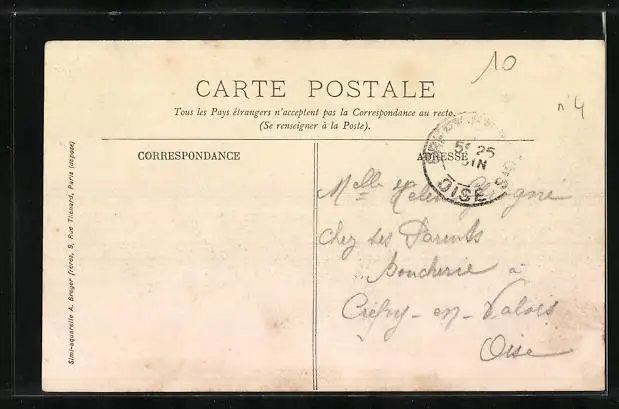 10
n° 4
CARTE POSTALE
Tous les Pays étrangers n'acceptent pas la Correspondance au recto.
(Se renseigner à la Poste).
CORRESPONDANCE
ADRESSE
25
JIN
OISE
Melle Helen
chez ses Parents
boucherie à
Crépy-en-Valois
Oise
Simi-aquarelle A. Breger frères, 9, Rue Thénard, Paris (déposé)